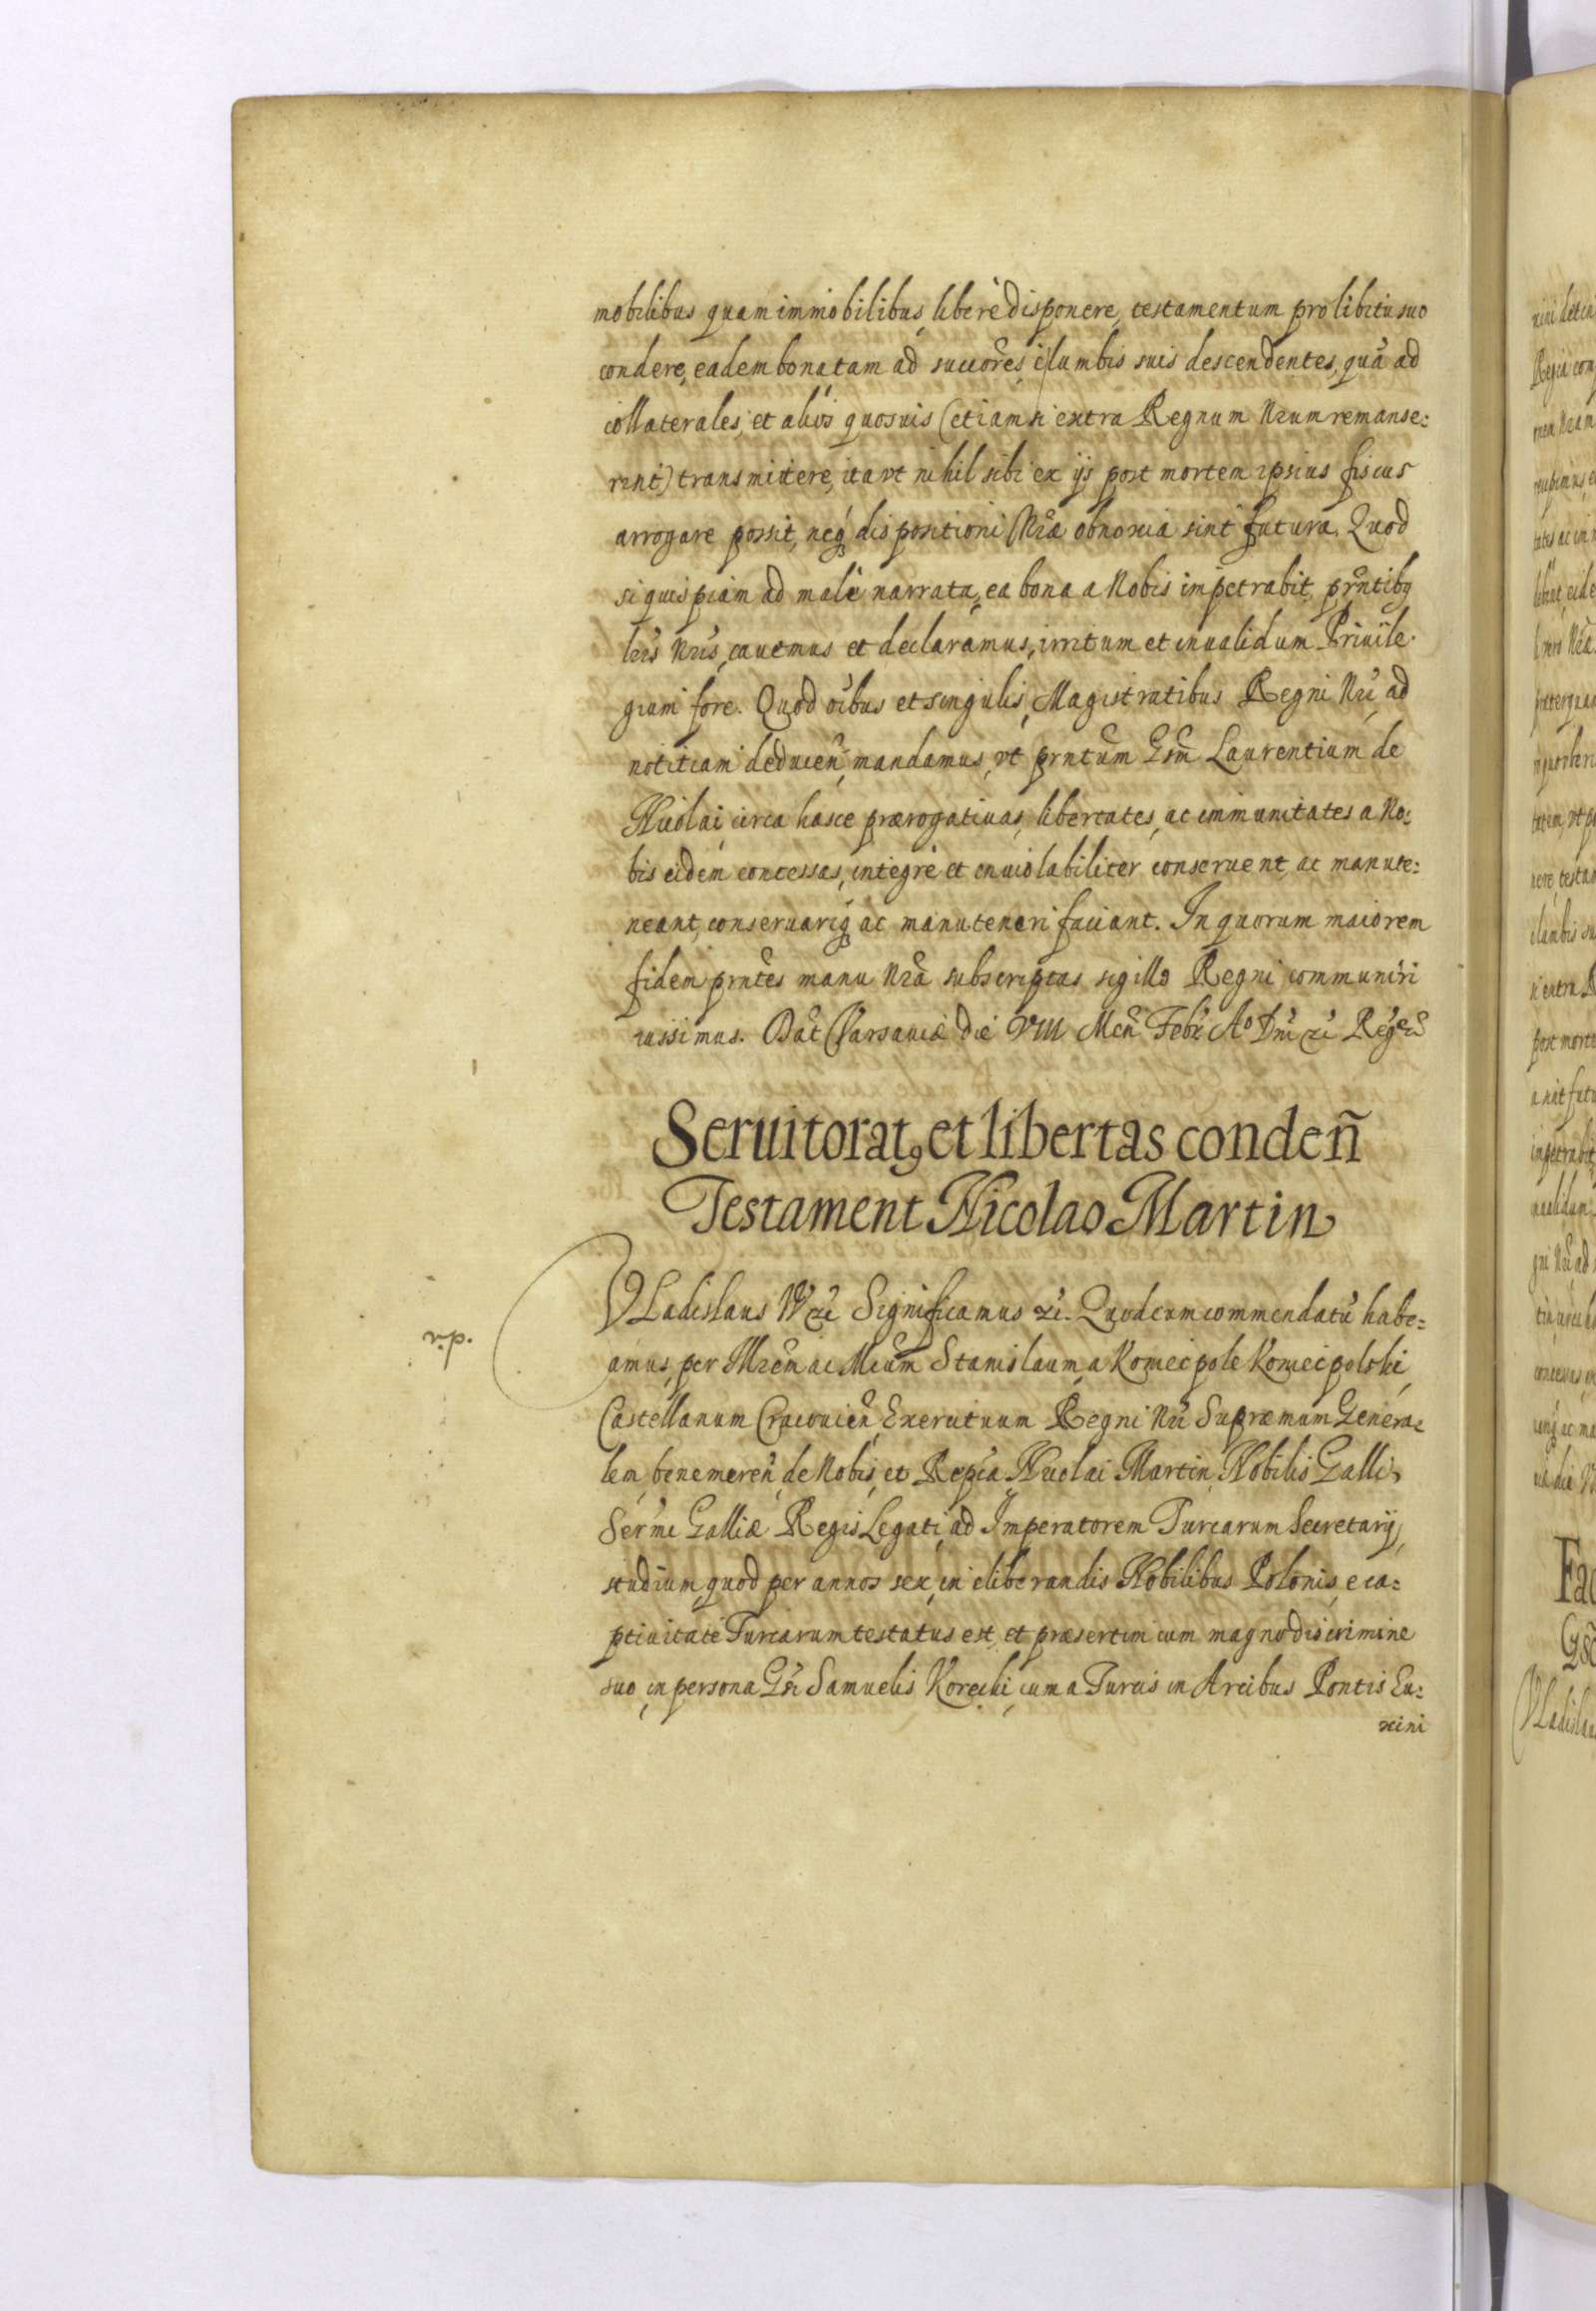 mobilibus quam immobilibus, liberè disponere, testamentum pro libitu suo
condere, eadem bona tam ad succores, è lumbis suis descendentes, quã ad
collaterales, et alios quosuis (etiam si extra Regnum Nrum remanse:
rint) transmittere, ita vt nihil sibi ex ijs post mortem ipsius fiscus
arrogare possit, neq dispositioni Nræ obnoxia sint futura. Quod
si quispiam ad malè narrata, ea bona a Nobis impetrabit, prntibq
lris Nris, cauemus et declaramus, irritum et inualidum Priuile:
gium fore. Quod oibus et singulis, Magistratibus Regni Nri, ad
notitiam deducen, mandamus, vt prntum Gsm Laurentium de
Nicolai, circa hasce prærogatiuas, libertates, ac immunitates a No:
bis eidem concessas, integrè et inuiolabiliter conseruent, ac manute:
neant, conseruariq ac manuteneri faciant. In quorum maiorem
fidem prntes manu Nra subscriptas sigillo Regni communiri
iussimus. Dat Varsauiæ die VIII Men Febr Ao Dni
Seruitorat9 et libertas condeñ
Testament Nicolao Martin
VLadislaus IV Significamus Quod cum commendatũ habe=
amus, per Illrem ac Mcum Stanislaum, a Koniecpole Koniecpolski,
Castellanum Cracouien, Exercituum Regni Nri Supræmum Genera=
lem, benemeren, de Nobis, et Repca, Nicolai Martin, Nobilis Galli,
Sermi Galliæ Regis Legati, ad Imperatorem Turcarum Secretarij,
studium, quod per annos sex, in eliberandis Nobilibus Polonis, e ca=
ptiuitate Turcarum testatus est, et præsertim cum magno discrimine
suo, in persona Gsi Samuelis Korecki, cum a Turcis in Arcibus Pontis Eu:
xini
v.p.